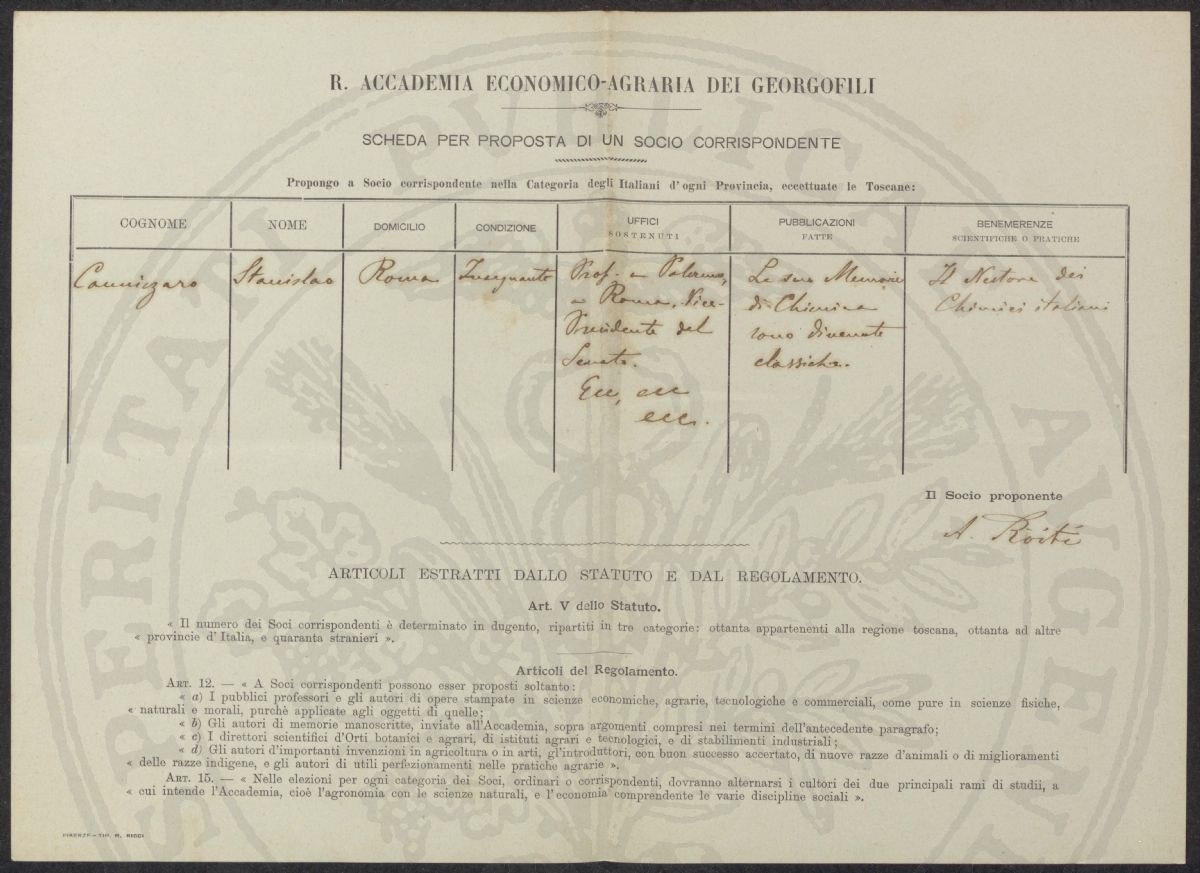 R. ACCADEMIA ECONOMICO-AGRARIA DEI GEORGOFILI
SCHEDA PER PROPOSTA DI UN SOCIO CORRISPONDENTE
Propongo a Socio corrispondente nella Categoria degli Italiani d'ogni Provincia, eccettuate le Toscane:
COGNOME
NOME
DOMICILIO
CONDIZIONE
UFFICI
SOSTENUTI
PUBBLICAZIONI
FATTE
BENEMERENZE
SCIENTIFICHE O PRATICHE
Cannizzaro
Stanislao
Roma
Insegnante
Prof. a Palermo,
a Roma. Vice-
Presidente del
Senato.
Ecc, ecc
ecc.
Le sue Memorie
di Chimica
sono divenute
classiche.
Il Nestore dei
Chimici italiani
Il Socio proponente
A. Ròiti
ARTICOLI ESTRATTI DALLO STATUTO E DAL REGOLAMENTO.
Art. V dello Statuto.
« Il numero dei Soci corrispondenti è determinato in dugento, ripartiti in tre categorie: ottanta appartenenti alla regione toscana, ottanta ad altre
« provincie d'Italia, e quaranta stranieri ».
Articoli del Regolamento.
ART. 12. — « A Soci corrispondenti possono esser proposti soltanto:
« a) I pubblici professori e gli autori di opere stampate in scienze economiche, agrarie, tecnologiche e commerciali, come pure in scienze fisiche,
« naturali e morali, purchè applicate agli oggetti di quelle;
« b) Gli autori di memorie manoscritte, inviate all'Accademia, sopra argomenti compresi nei termini dell'antecedente paragrafo;
« c) I direttori scientifici d'Orti botanici e agrari, di istituti agrari e tecnologici, e di stabilimenti industriali;
« d) Gli autori d'importanti invenzioni in agricoltura o in arti, gl'introduttori, con buon successo accertato, di nuove razze d'animali o di miglioramenti
« delle razze indigene, e gli autori di utili perfezionamenti nelle pratiche agrarie ».
ART. 15. — « Nelle elezioni per ogni categoria dei Soci, ordinari o corrispondenti, dovranno alternarsi i cultori dei due principali rami di studii, a
« cui intende l'Accademia, cioè l'agronomia con le scienze naturali, e l'economia comprendente le varie discipline sociali ».
FIRENZE — TIP. M. RICCI